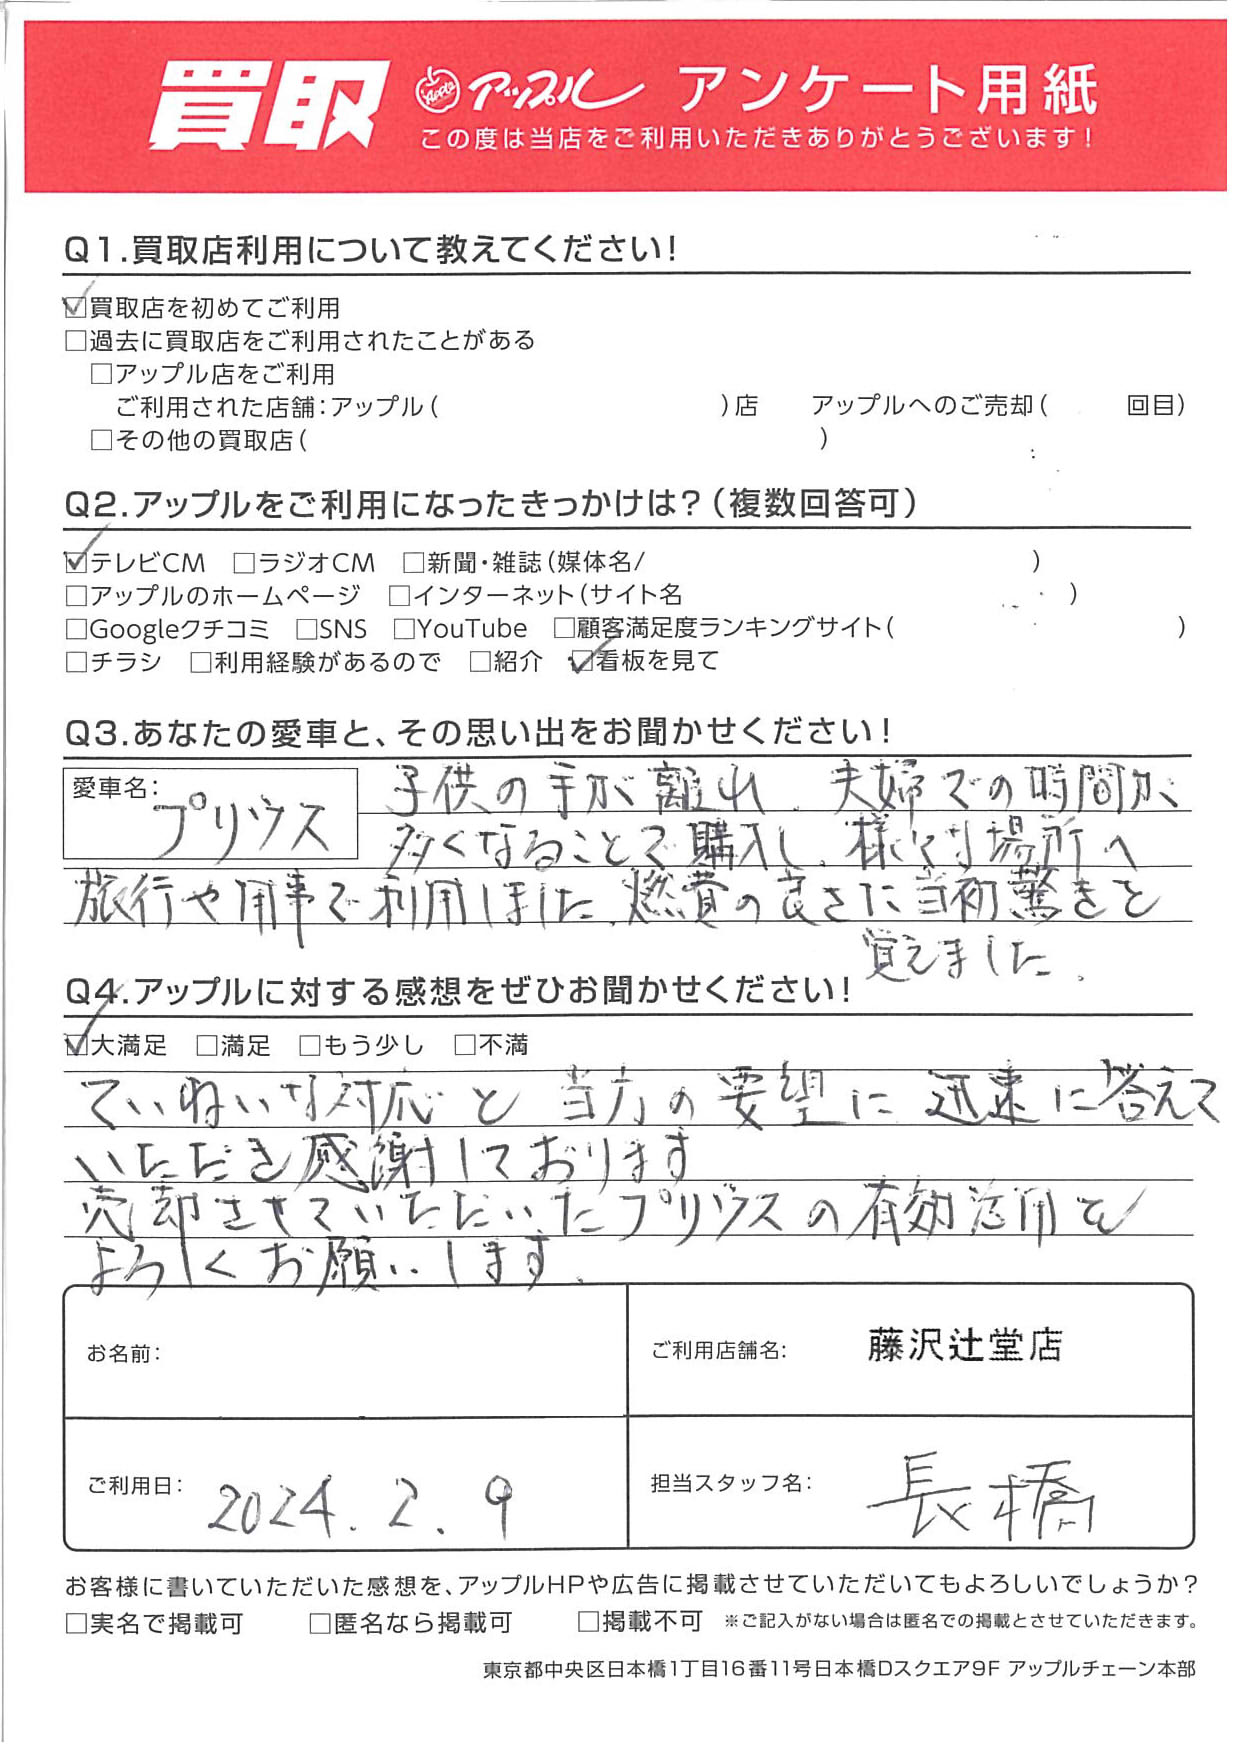 買取 Apple アップル アンケート用紙
この度は当店をご利用いただきありがとうございます!
Q1.買取店利用について教えてください!
☑買取店を初めてご利用
□過去に買取店をご利用されたことがある
□アップル店をご利用
ご利用された店舗:アップル( )店 アップルへのご売却( 回目)
□その他の買取店( )
Q2.アップルをご利用になったきっかけは?(複数回答可)
☑テレビCM □ラジオCM □新聞・雑誌(媒体名/ )
□アップルのホームページ □インターネット(サイト名 )
□Googleクチコミ □SNS □YouTube □顧客満足度ランキングサイト( )
□チラシ □利用経験があるので □紹介 ☑看板を見て
Q3.あなたの愛車と、その思い出をお聞かせください!
愛車名: プリウス
子供の手が離れ、夫婦での時間が
多くなることで購入し、様々な場所へ
旅行や用事で利用しました。燃費の良さに当初驚きを
覚えました。
Q4.アップルに対する感想をぜひお聞かせください!
☑大満足 □満足 □もう少し □不満
ていねいな対応と当方の要望に迅速に答えて
いただき感謝しております
売却させていただいたプリウスの有効活用を
よろしくお願いします。
お名前: ご利用店舗名: 藤沢辻堂店
ご利用日: 2024.2.9 担当スタッフ名: 長橋
お客様に書いていただいた感想を、アップルHPや広告に掲載させていただいてもよろしいでしょうか?
□実名で掲載可 □匿名なら掲載可 □掲載不可 ※ご記入がない場合は匿名での掲載とさせていただきます。
東京都中央区日本橋1丁目16番11号日本橋Dスクエア9F アップルチェーン本部